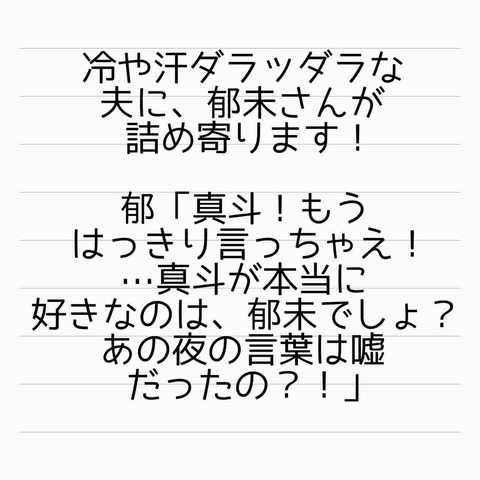 冷や汗ダラッダラな
夫に、郁未さんが
詰め寄ります！
郁「真斗！もう
はっきり言っちゃえ！
…真斗が本当に
好きなのは、郁未でしょ？
あの夜の言葉は嘘
だったの？！」